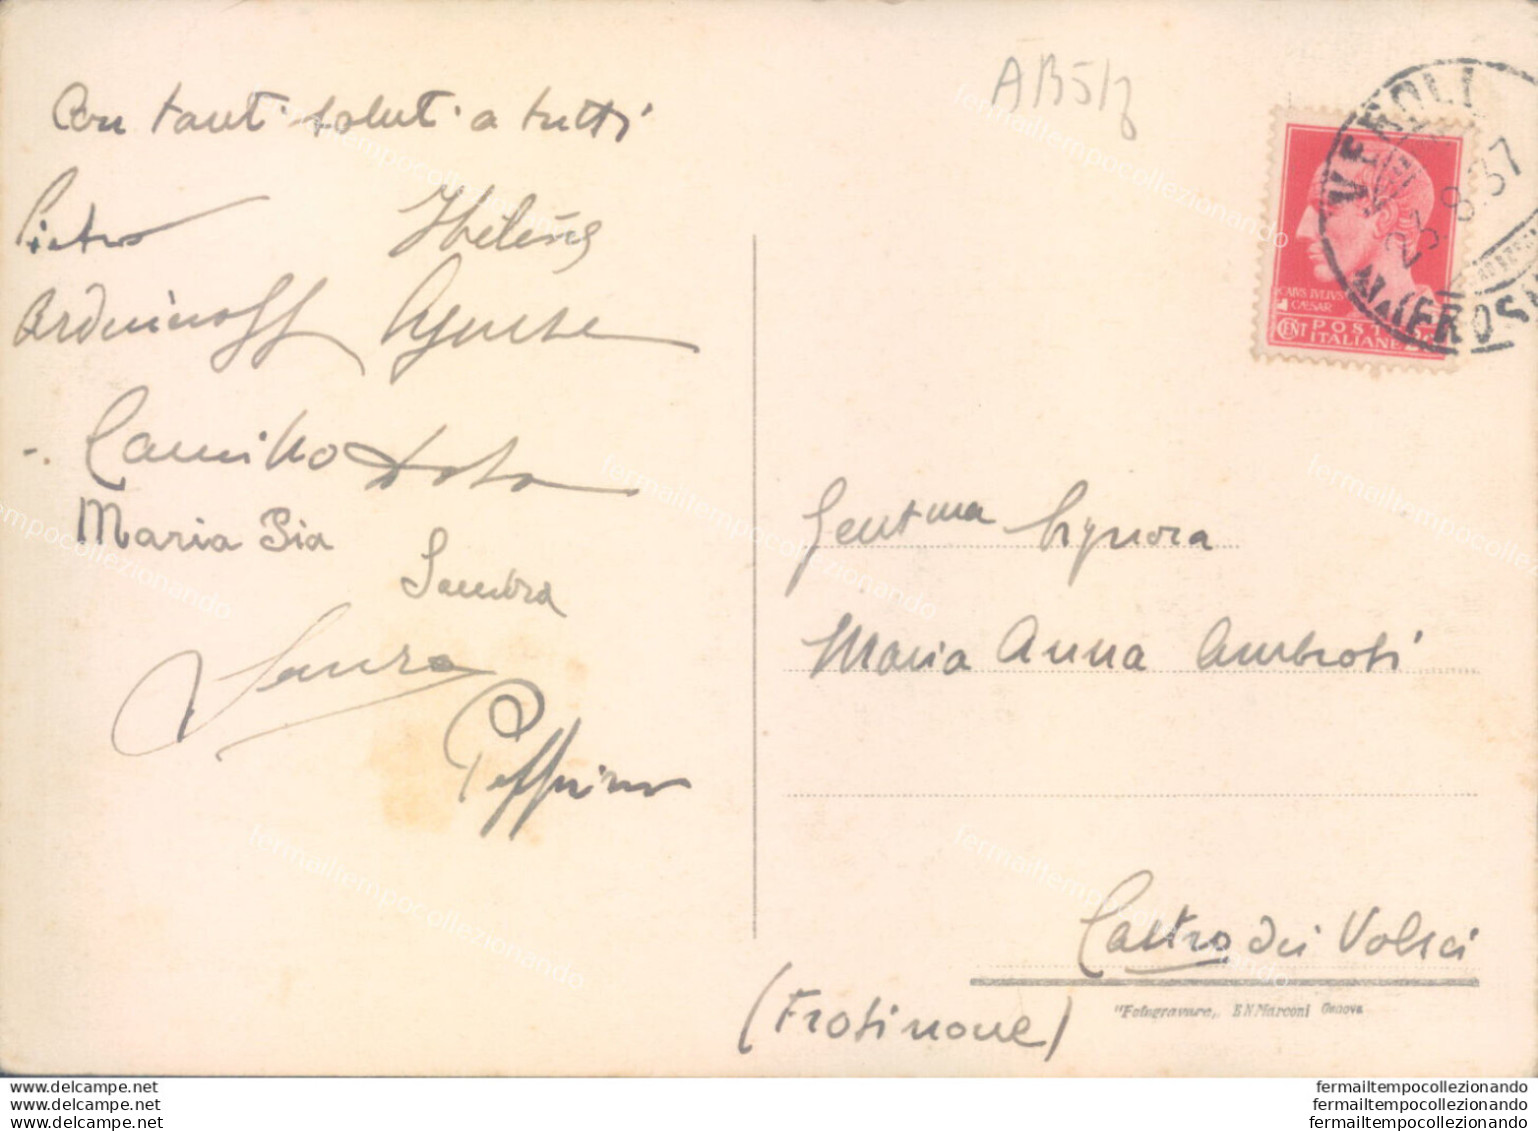 Con tanti saluti a tutti
Pietro
Agnese
Camillo
Maria Pia
Sandra
Laura
Peppino
AB5/
VEROLI
23.8.37
(FROSI
CAIVS IVLIVS
CAESAR
CENT POSTE
ITALIANE
Gent.ma Signora
Maria Anna Ambrosi
Castro dei Volsci
(Frosinone)
"Fotogravure„ E.N.Marconi Genova
fermailtempocollezionando
www.delcampe.net
www.delcampe.net
www.delcampe.net
fermailtempocollezionando
fermailtempocollezionando
fermailtempocollezionando